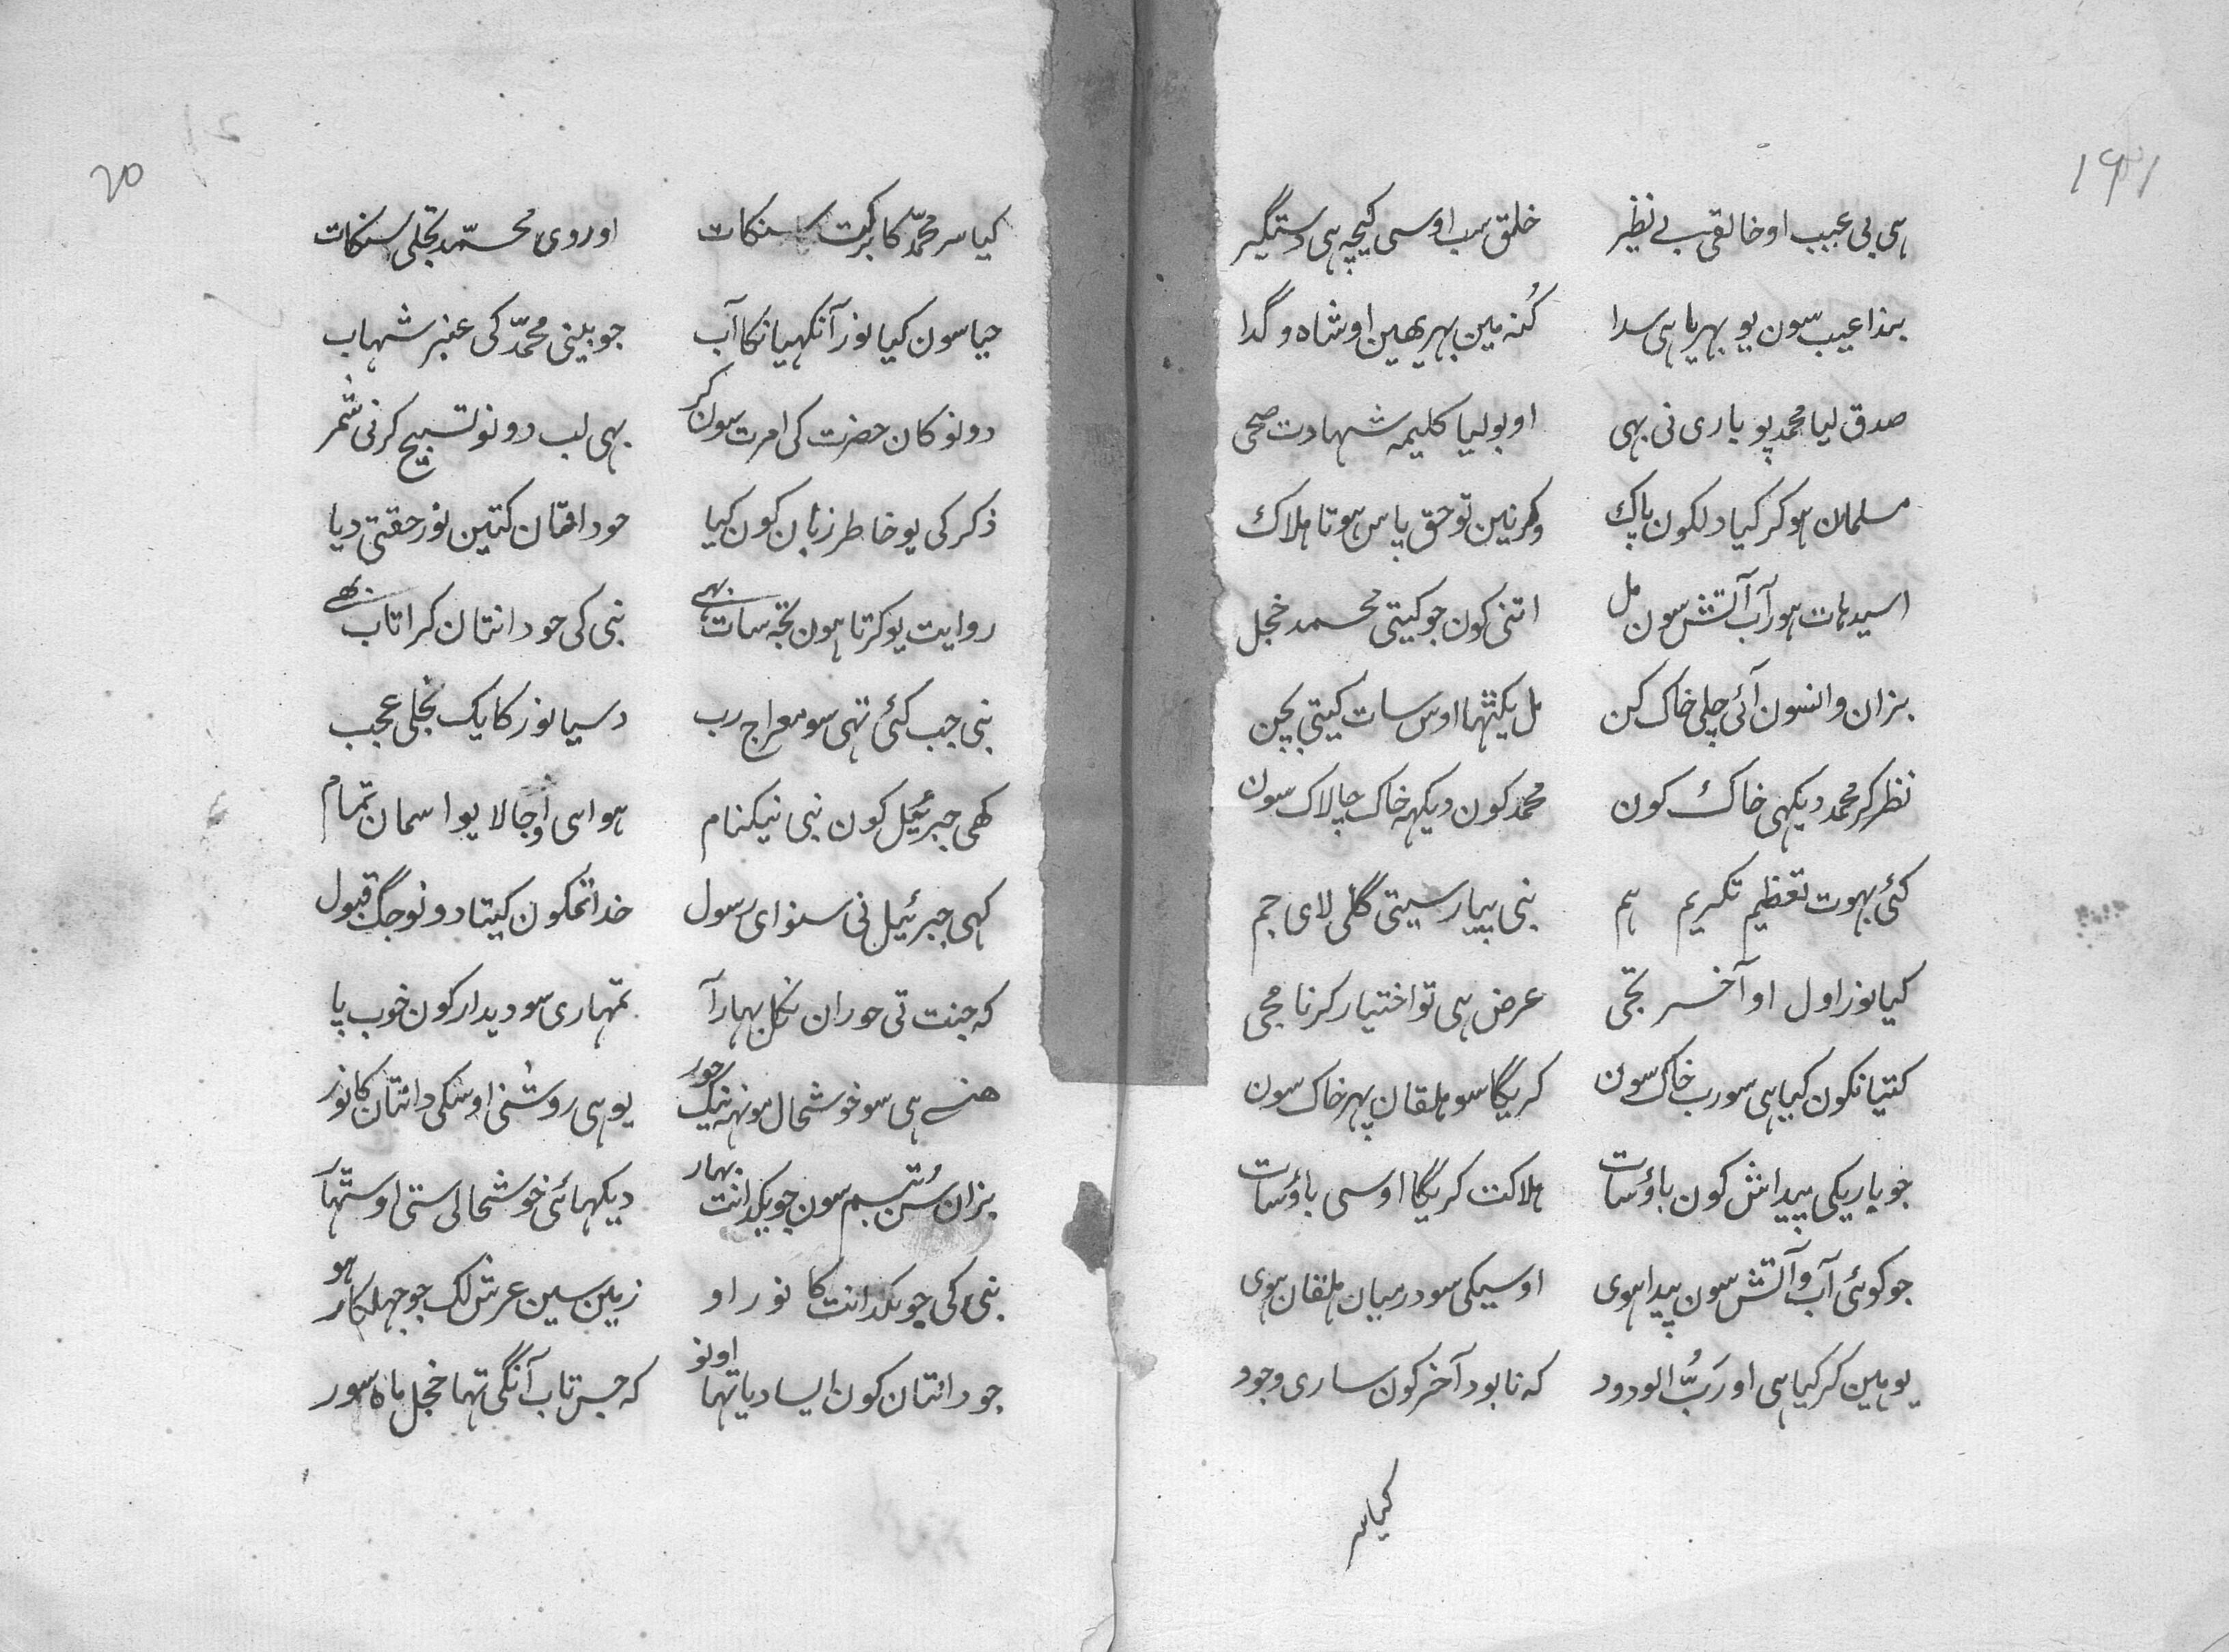 ہی بی عیب او خالق بے نظیر خلق سب اوسی کیچہ ہی دستگیر
بندا عیب سون یو بھریا ہی سدا کُنہ مین بھری ھین او شاہ و گدا
صدق لیا محمد پو باری نی بہی او بولیا کلیمہ شہادت صحی
مسلمان ہو کر کیا دلکون پاک وگرنین تو حق پاس ہوتا ہلاک
اسیدہات ہور آب آتش سون مل اتنی کون جو کیتی محمد خجل
بزان وانسون آئی چلی خاک کن مل یکٹھا اوس سات کیتی بچن
نظر کر محمد دیکہی خاک کون محمد کون دیکہہ خاک چالاک سون
کئی بہوت تعظیم تکریم ہم نبی پیار سیتی گلی لای جم
کیا نور اول او آخر تجی عرض ہی تو اختیار کرنا مجی
کتیانکون کیا ہی سو رب خاک سون کریگا سو ہلقان پہر خاک سون
جو باریکی پیدائش کون باؤ سات ہلاکت کریگا اوسی باؤ سات
جو کوئی آب و آتش سون پیدا ہوی اوسیکی سو درمیان ہلقان ہوی
یو ہین کر کیا ہی او رَبُّ الودود کہ نابود آخر کون ساری وجود
کیا سر
۲۰
کیا سر محمّد کا برکت سنکات او روی محمّد تجلی سنکات
حیا سون کیا نور آنکہیانکا آب جو بینی محمّد کی عنبر شہاب
دونو کان حضرت کی امرت سون کر بہی لب دونو تسبیح کرنی ثمر
ذکر کی یو خاطر زبان کون کیا جو دانتان کتین نور حقتی دیا
روایت یو کرتا ہون تجہ سات بہی نبی کی جو دانتان کرا تاب بھی
نبی جب کئی تہی سو معراج رب دسیا نور کا یک تجلی عجب
کھی جبرئیل کون نبی نیکنام ہوا سی اوجالا یو اسمان تمام
کہی جبرئیل نی سنو ای رسول خدا تمکون کیتا دونو جگ قبول
کہ جنت تی حوران نکل بہار آ تمہاری سو دیدار کون خوب پا
ھنسے ہی سو خوشحال ہو نہہ نیک حور یو ہی روشنی اوسکی دانتان کا نور
بزان سُن تبسم سون جو یکدانت بہار دیکہائی خوشحالی ستی اوستہار
نبی کی جو یکدانت کا نور او زمین سین عرش لک جو جھلکار ہو
جو دانتان کون ایسا دیا تہا او نور کہ جس تاب آنگی تہا خجل ماہ سور